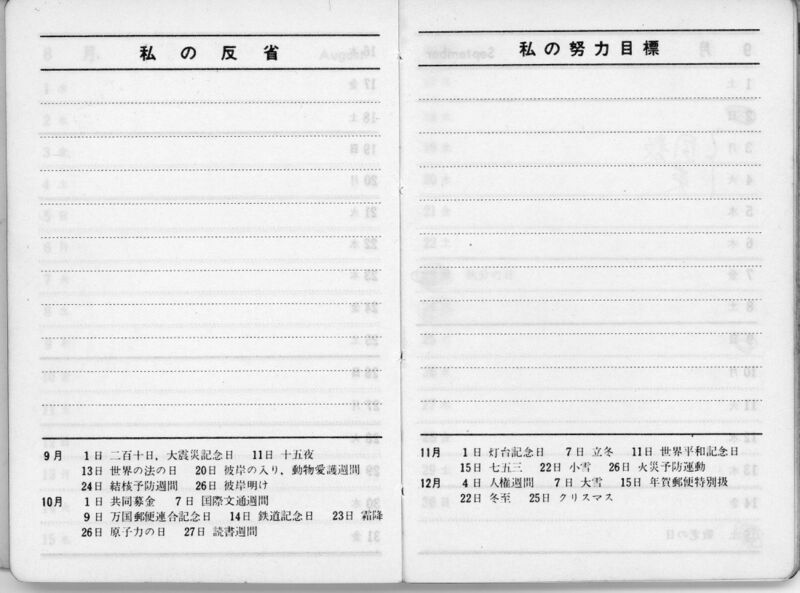 私の反省
9月 1日 二百十日，大震災記念日 11日 十五夜
13日 世界の法の日 20日 彼岸の入り，動物愛護週間
24日 結核予防週間 26日 彼岸明け
10月 1日 共同募金 7日 国際文通週間
9日 万国郵便連合記念日 14日 鉄道記念日 23日 霜降
26日 原子力の日 27日 読書週間
私の努力目標
11月 1日 灯台記念日 7日 立冬 11日 世界平和記念日
15日 七五三 22日 小雪 26日 火災予防運動
12月 4日 人権週間 7日 大雪 15日 年賀郵便特別扱
22日 冬至 25日 クリスマス